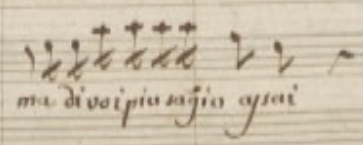 ma di voi piu sagio assai